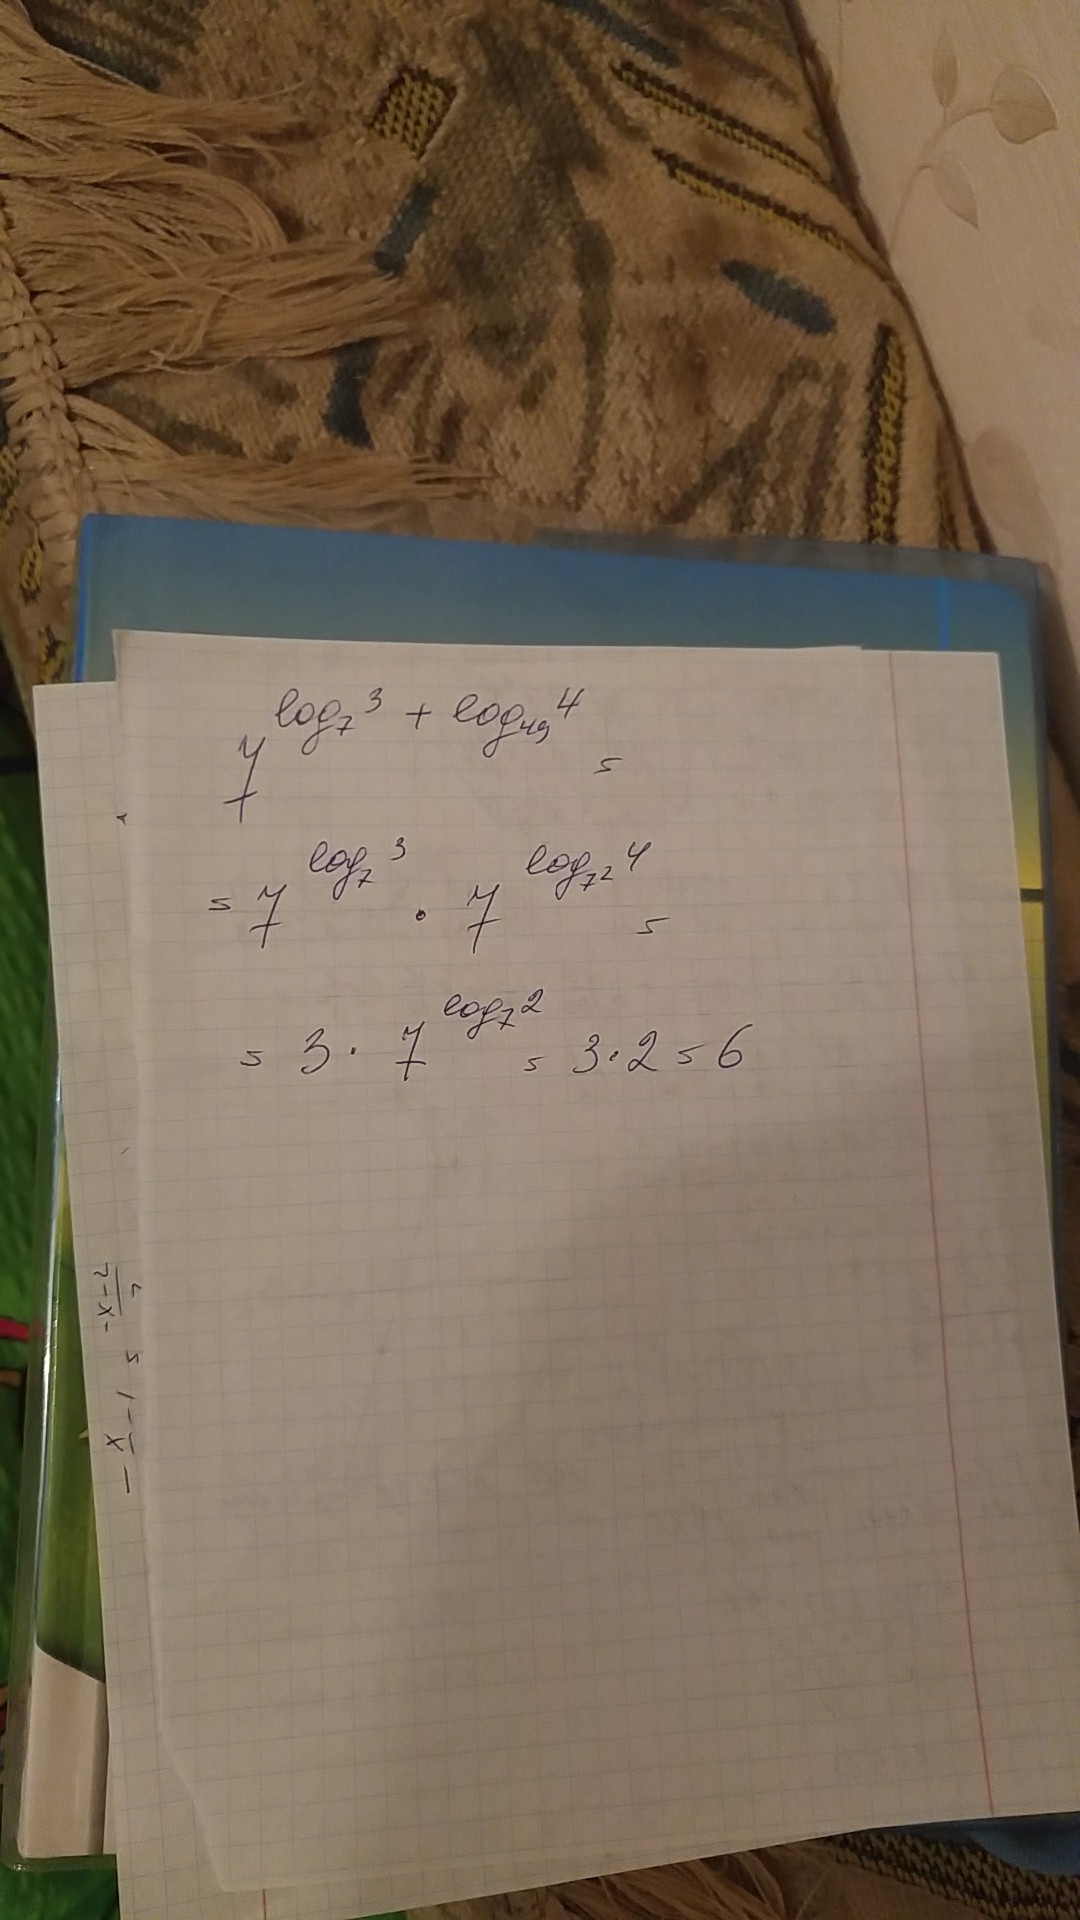 7^{log_7 3 + log_{49} 4} =
= 7^{log_7 3} · 7^{log_{7^2} 4} =
= 3 · 7^{log_7 2} = 3 · 2 = 6